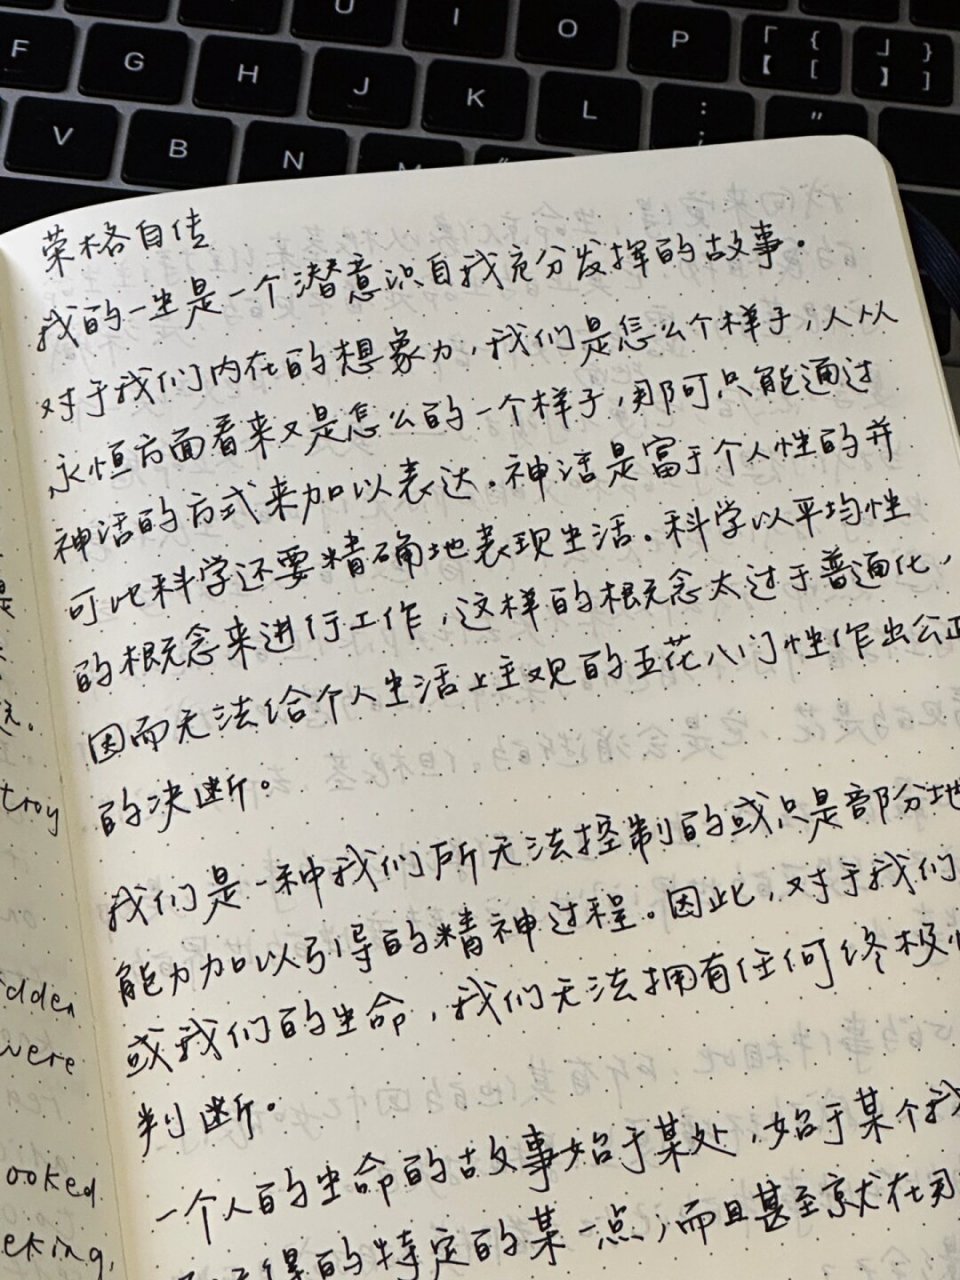 U I O P 「 { 【 [ 」 } 】 ]
F G H J K L : ; "
V B N M
荣格自传
我的一生是一个潜意识自我充分发挥的故事。
对于我们内在的想象力,我们是怎么个样子,人从
永恒方面看来又是怎么的一个样子,那可只能通过
神话的方式来加以表达。神话是富于个人性的并
可比科学还要精确地表现生活。科学以平均性
的概念来进行工作,这样的概念太过于普通化,
因而无法给个人生活上主观的五花八门性作出公正
的决断。
我们是一种我们所无法控制的或只是部分地
能力加以引导的精神过程。因此,对于我们
或我们的生命,我们无法拥有任何终极性
判断。
一个人的生命的故事始于某处,始于某个我
得的特定的某一点,而且甚至就在
是
。
troy
on
dden
were
ooked
eking,